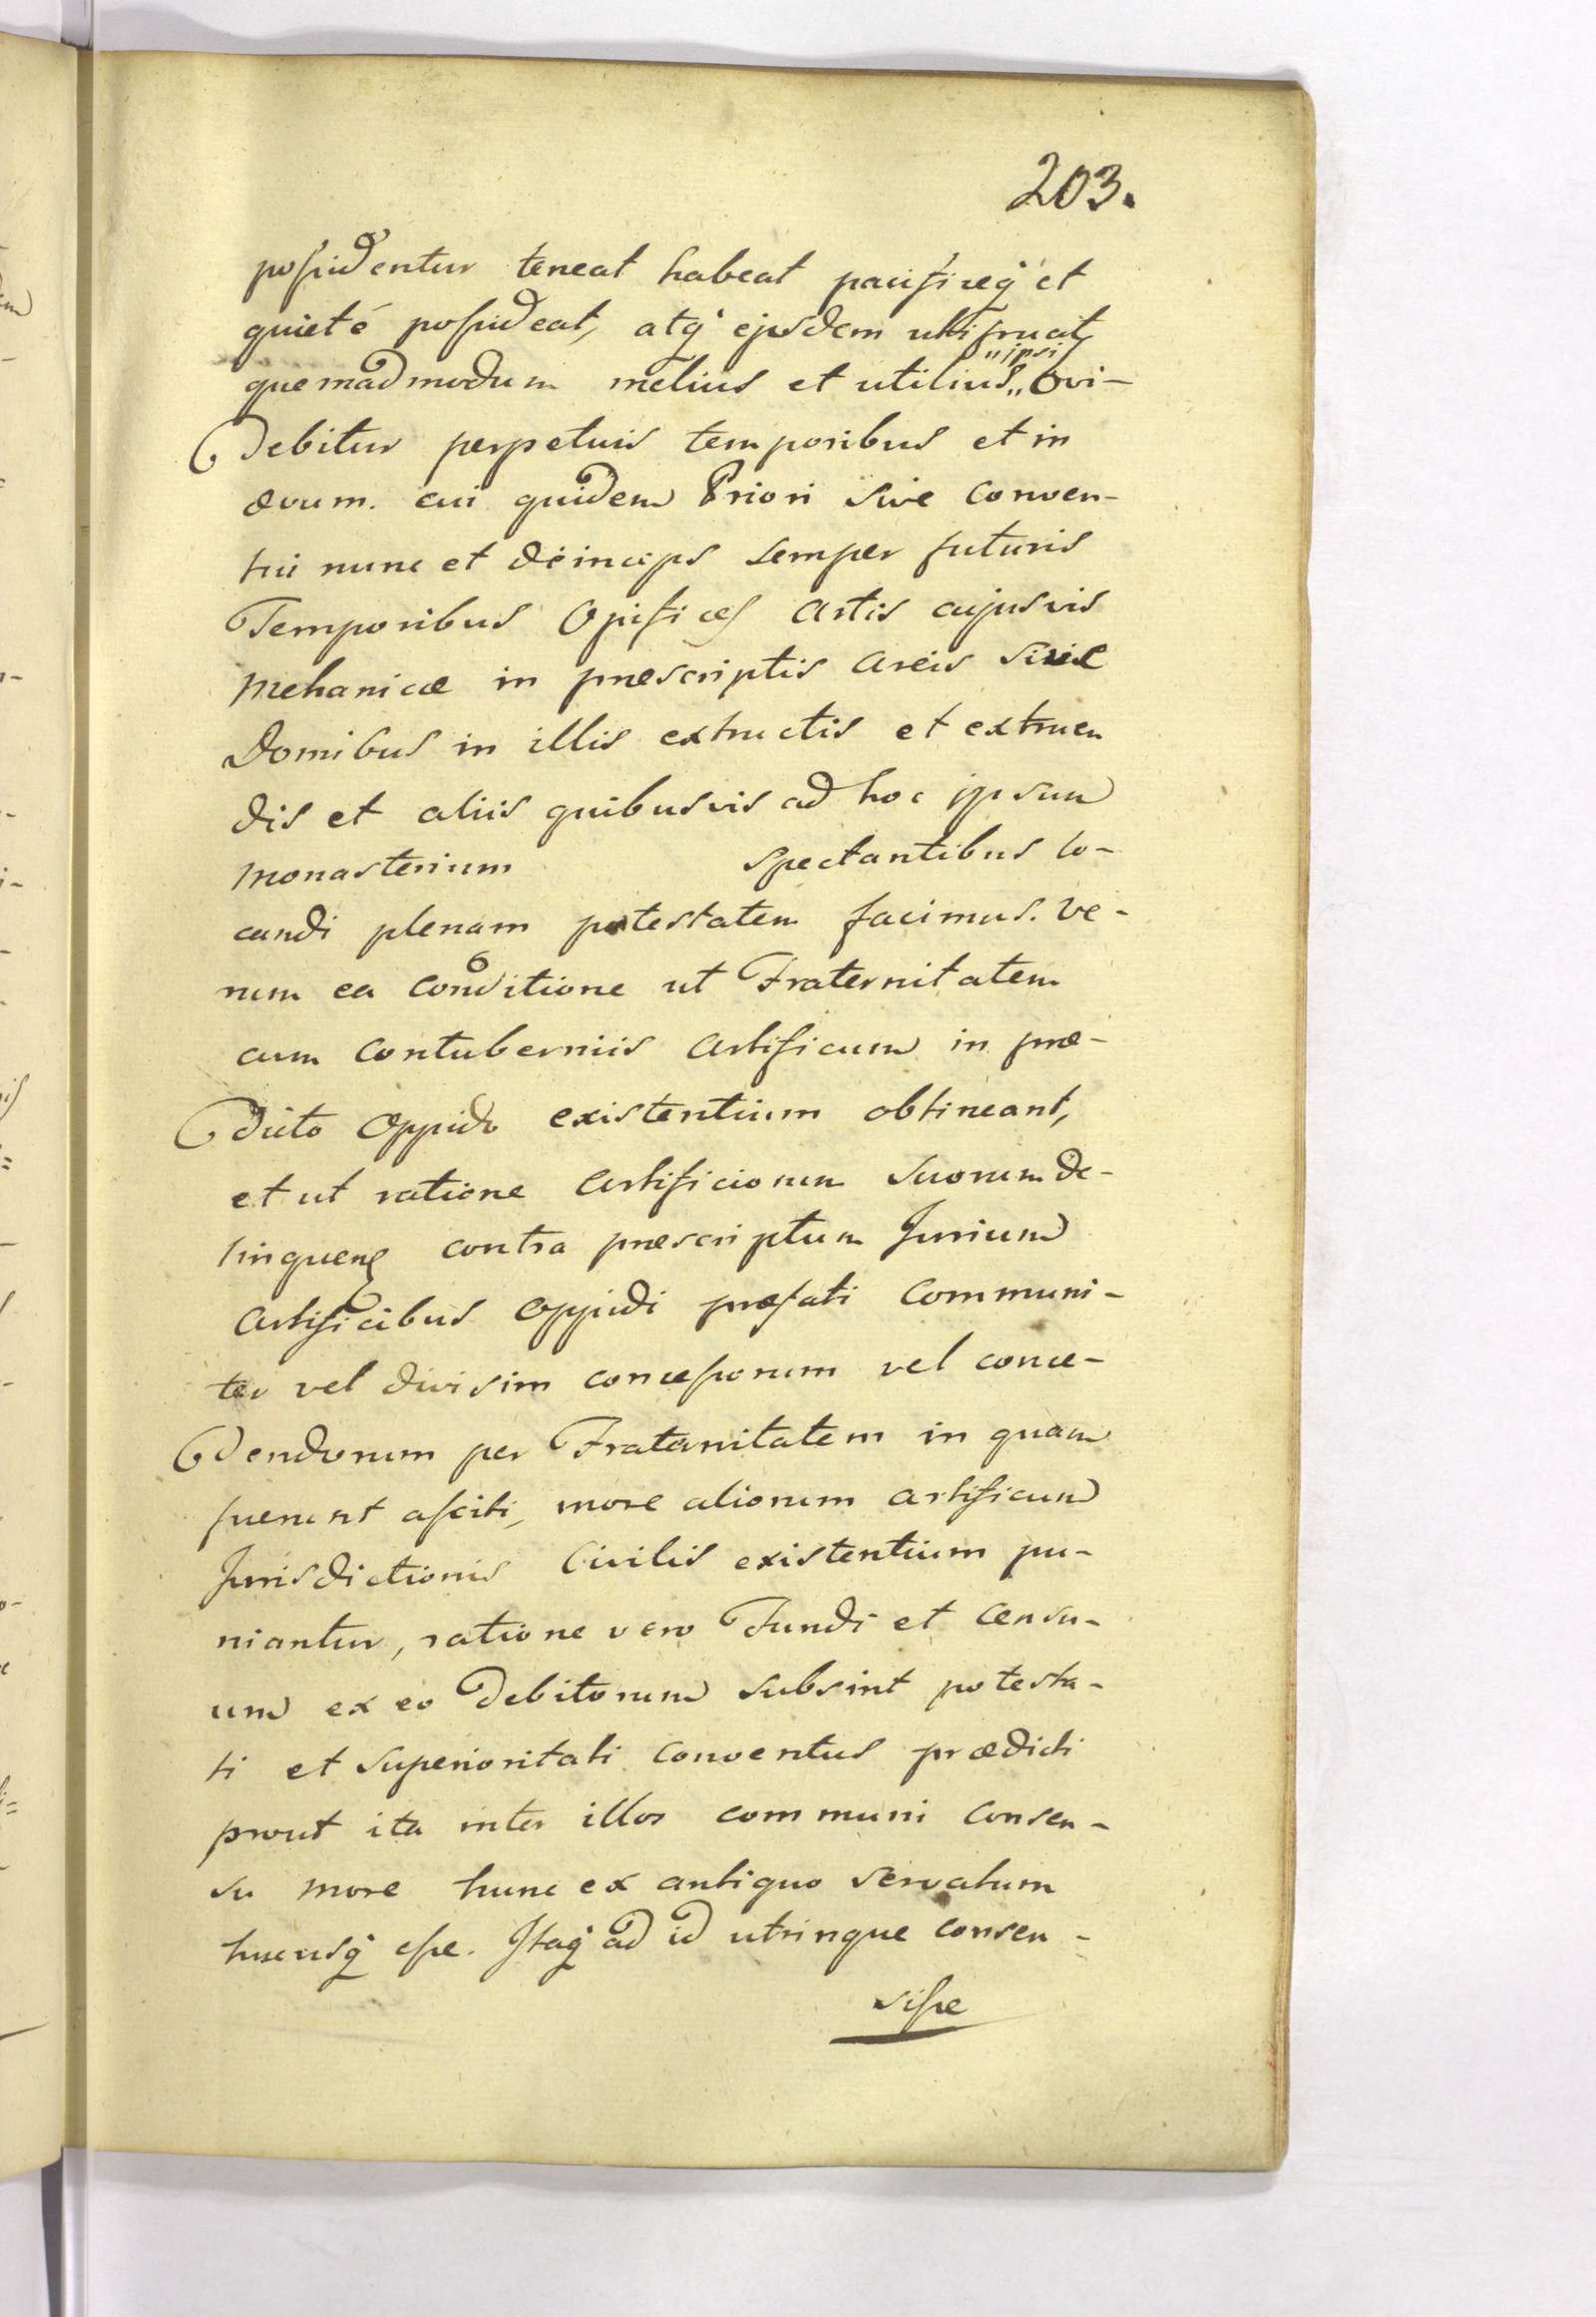 203.
possidentur teneat habeat pacificeq̃ et
quieté possideat, atq̃ ejusdem utifruat
quemadmodum melius et utilius „ipsi„ vi-
debitur perpetuis temporibus et in
ævum. cui quidem Priori sive conven-
tui nunc et deinceps semper futuris
Temporibus Opifices Artis cujusvis
Mehanicæ in præscriptis areis sive
Domibus in illis extructis et extruen
dis et aliis quibusvis ad hoc ipsum
Monasterium spectantibus lo-
candi plenam potestatem facimus. Ve-
rum ea conditione ut Fraternitatem
cum Contuberniis Artificum in præ-
dicto Oppido existentium obtineant,
et ut ratione Artificiorum Suorum de-
linquen̄ contra præscriptum Jurium
Artificibus Oppidi præfati Communi-
ter vel divisim concessorum vel conce-
dendorum per Fraternitatem in quam
fuerint asciti, more aliorum artificum
Jurisdictionis Civilis existentium pu-
niantur, ratione vero Fundi et censu-
um ex eo debitorum subsint potesta-
ti et Superioritati conventus prædicti
prout ita inter illos communi consen-
su more hunc ex antiquo servatum
hucusq̃ esse. Itaq̃ ad id utrinque consen-
sisse